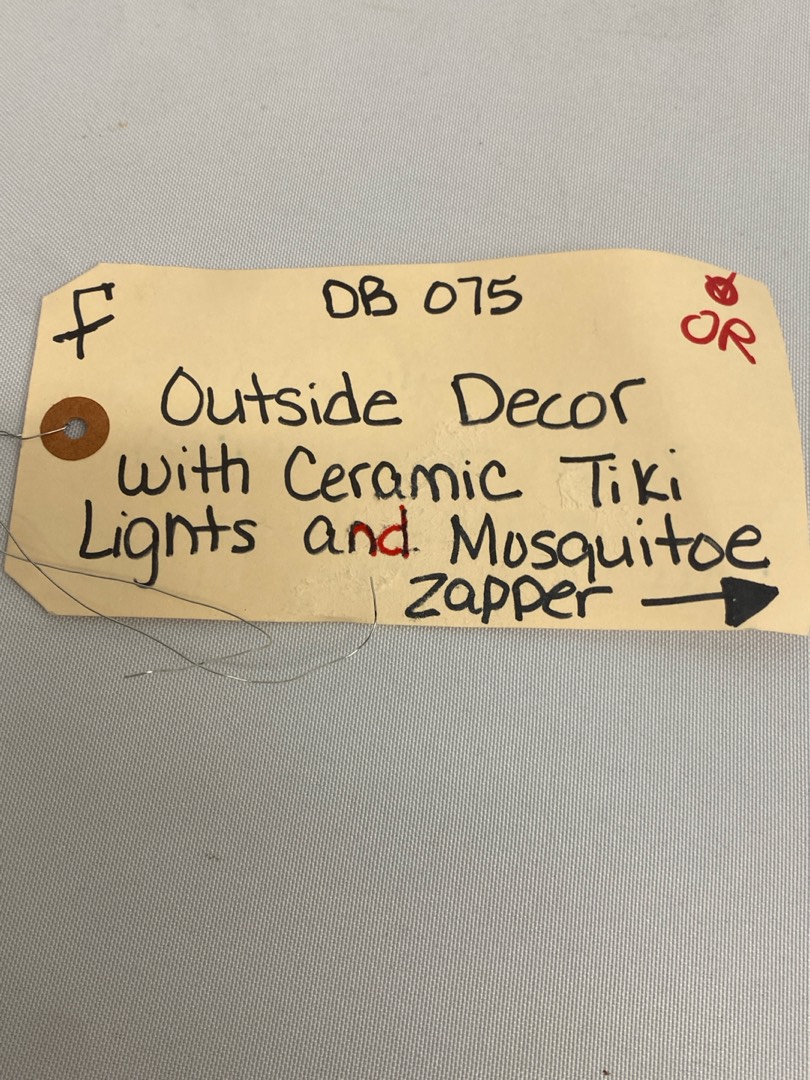 F
DB 075
OR
Outside Decor
with Ceramic Tiki
Lights and Mosquitoe
zapper